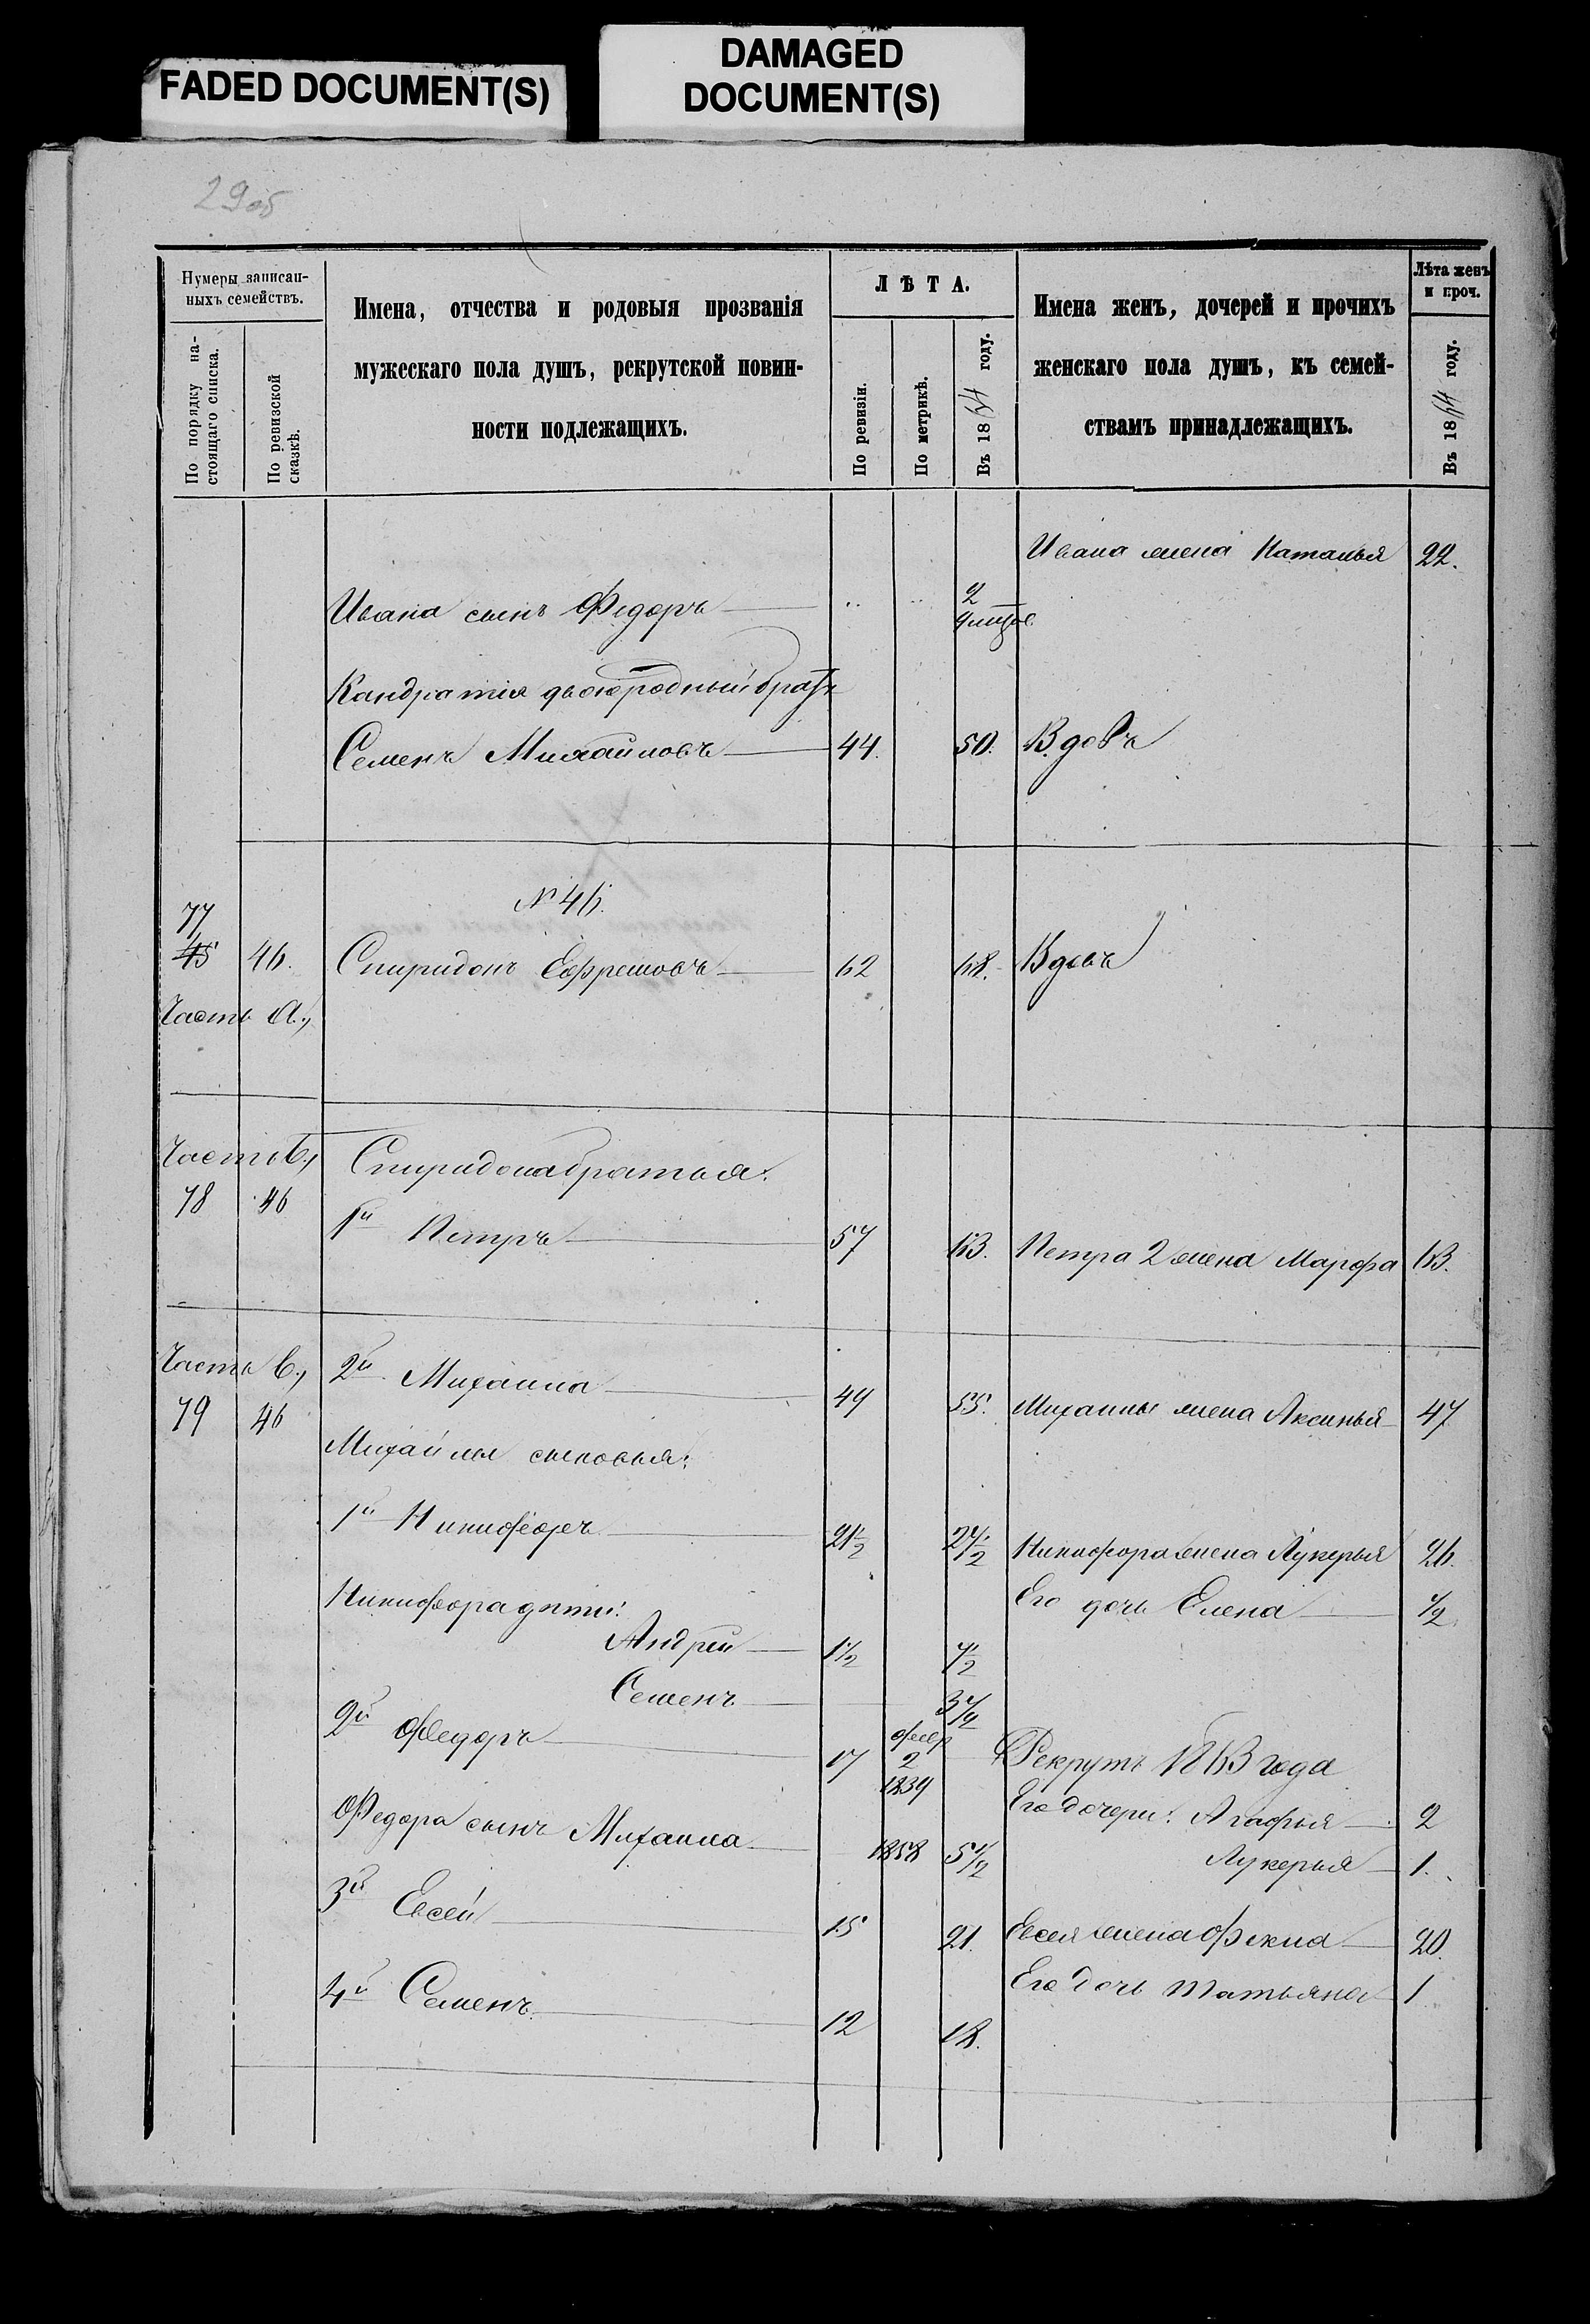 FADED DOCUMENT(S)
DAMAGED
DOCUMENT(S)
29об
Нумеры записан-
ныхъ семействъ.
По порядку на-
стоящаго списка.
По ревизской
сказкѣ.
Имена, отчества и родовыя прозванія
мужескаго пола душъ, рекрутской повин-
ности подлежащихъ.
ЛѢТА.
По ревизіи.
По метрикѣ.
Въ 1864 году.
Имена женъ, дочерей и прочихъ
женскаго пола душъ, къ семей-
ствамъ принадлежащихъ.
Лѣта женъ
и проч.
Въ 1864 году.
Ивана жена Наталья 22.
Ивана сынъ Федоръ 2
Кандратія двоюродный братъ
Семенъ Михайловъ 44. 50. Вдовъ
N 46.
77
45 46. Спиридонъ Ефремовъ 62 68. Вдовъ
Часть А.,
Часть Б., Спиридона братья:
78 46
1й Петръ 57 63. Петра 2 жена Марфа 63.
Часть В., 2й Михаила 49 55. Михаилы жена Аксинья 47
79 46
Михайлы сыновья:
1й Никифоръ 21½ 27½ Никифора жена Лукерья 26.
Никифора дѣти: Его дочь Елена ½
Андрей 1½ 7½
Семенъ 3½
2й Федоръ 17 февр 2 1839 Рекрутъ 1863 года
Федора сынъ Михаила 1858 5½ Его дочери: Агафья 2
Лукерья 1.
3й Евсей 15 21. Евсея жена Фекла 20.
Его дочь Татьяна 1
4й Семенъ 12 18.